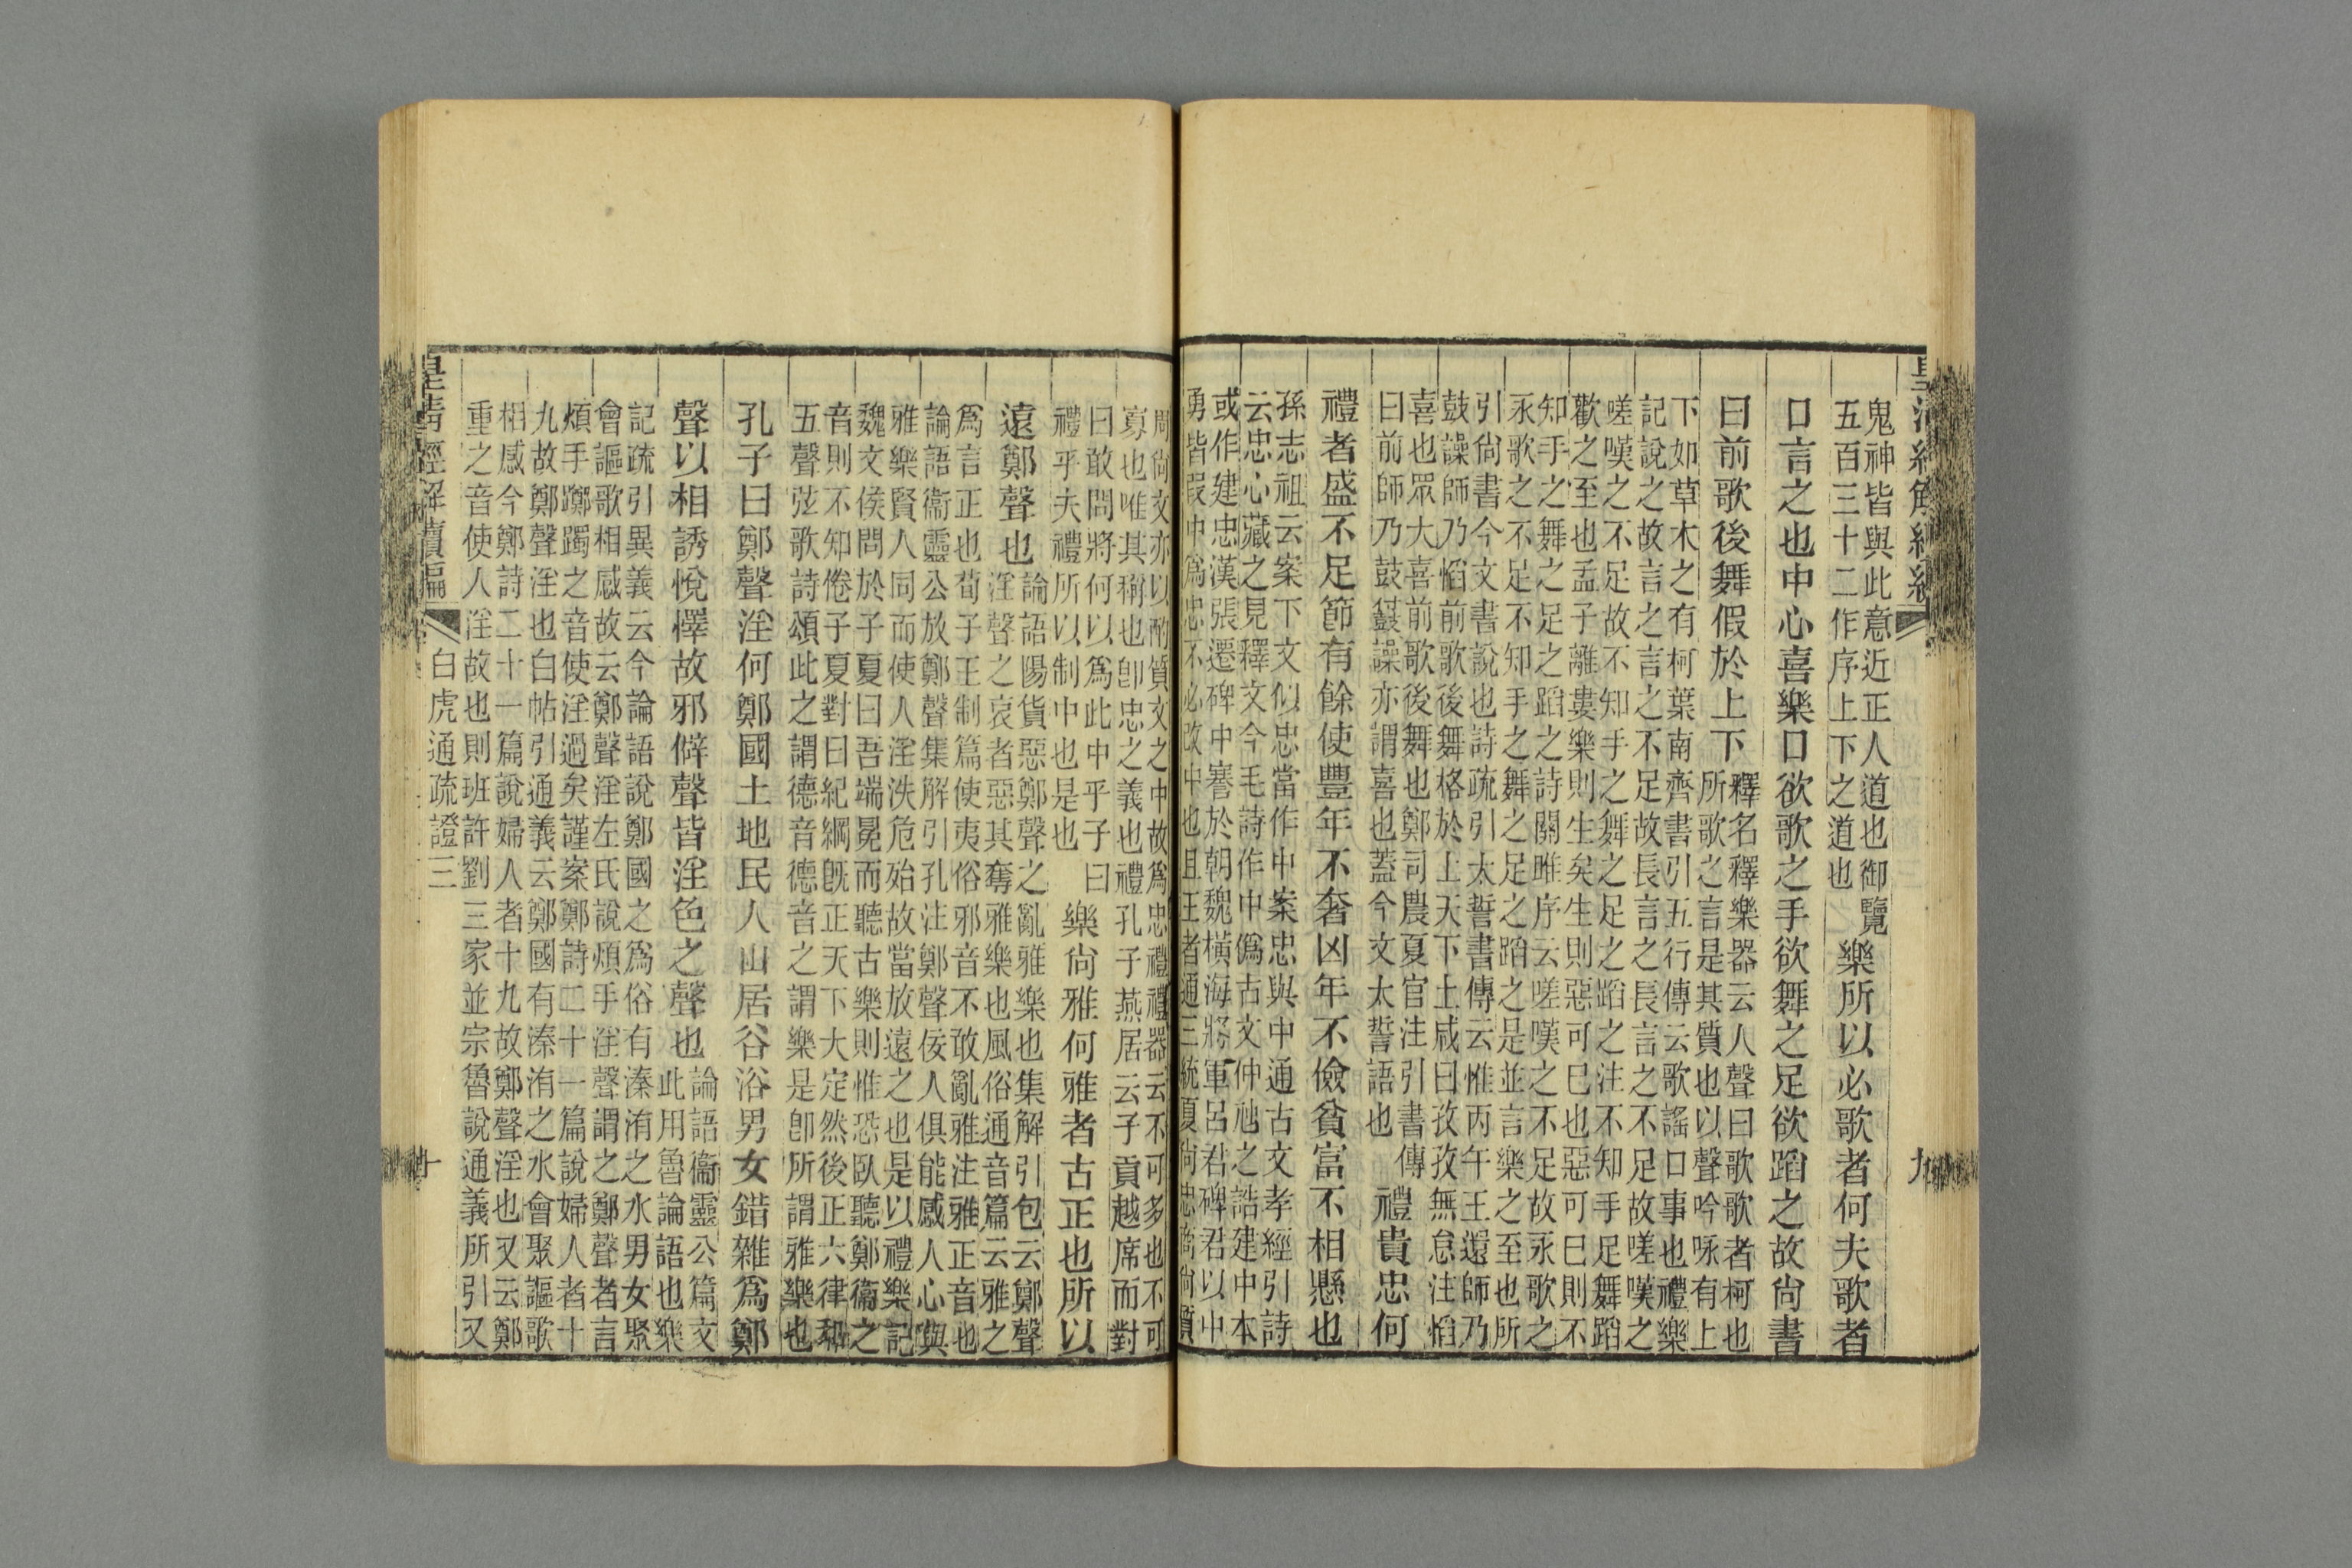 皇清經解續編
九
鬼神皆與此意近正人道也御覽
五百三十二作序上下之道也
樂所以必歌者何夫歌者
口言之也中心喜樂口欲歌之手欲舞之足欲蹈之故尚書
曰前歌後舞假於上下
釋名釋樂器云人聲曰歌歌者柯也
所歌之言是其質也以聲吟咏有上
下如草木之有柯葉南齊書引五行傳云歌謠口事也禮樂
記說之故言之言之不足故長言之長言之不足故嗟嘆之
嗟嘆之不足故不知手之舞之足之蹈之注不知手足舞蹈
歡之至也孟子離婁樂則生矣生則惡可已也惡可已則不
知手之舞之足之蹈之詩關雎序云嗟嘆之不足故永歌之
永歌之不足不知手之舞之足之蹈之是並言樂之至也所
引尚書今文書說也詩疏引太誓書傳云惟丙午王還師乃
鼓譟師乃慆前歌後舞格於上天下土咸曰孜孜無怠注慆
喜也眾大喜前歌後舞也鄭司農夏官注引書傳
曰前師乃鼓鼜譟亦謂喜也蓋今文太誓語也
禮貴忠何
禮者盛不足節有餘使豐年不奢凶年不儉貧富不相懸也
孫志祖云案下文似忠當作中案忠與中通古文孝經引詩
云忠心藏之見釋文今毛詩作中僞古文仲虺之誥建中本
或作建忠漢張遷碑中謇於朝魏橫海將軍呂君碑君以中
勇皆假中爲忠不必改中也且王者通三統夏尚忠商尚質
周尚文亦以酌質文之中故爲忠禮禮器云不可多也不可
寡也唯其稱也卽忠之義也禮孔子燕居云子貢越席而對
曰敢問將何以爲此中乎子曰
禮乎夫禮所以制中也是也
樂尚雅何雅者古正也所以
遠鄭聲也
論語陽貨惡鄭聲之亂雅樂也集解引包云鄭聲
淫聲之哀者惡其奪雅樂也風俗通音篇云雅之
爲言正也荀子王制篇使夷俗邪音不敢亂雅注雅正音也
論語衞靈公放鄭聲集解引孔注鄭聲佞人俱能感人心與
雅樂賢人同而使人淫泆危殆故當放遠之也是以禮樂記
魏文侯問於子夏曰吾端冕而聽古樂則惟恐臥聽鄭衞之
音則不知倦子夏對曰紀綱旣正天下大定然後正六律和
五聲弦歌詩頌此之謂德音德音之謂樂是卽所謂雅樂也
孔子曰鄭聲淫何鄭國土地民人山居谷浴男女錯雜爲鄭
聲以相誘悅懌故邪僻聲皆淫色之聲也
論語衞靈公篇文
此用魯論語也樂
記疏引異義云今論語說鄭國之爲俗有溱洧之水男女聚
會謳歌相感故云鄭聲淫左氏說煩手淫聲謂之鄭聲者言
煩手躑躅之音使淫過矣謹案鄭詩二十一篇說婦人者十
九故鄭聲淫也白帖引通義云鄭國有溱洧之水會聚謳歌
相感今鄭詩二十一篇說婦人者十九故鄭聲淫也又云鄭
重之音使人淫故也則班許劉三家並宗魯說通義所引又
皇清經解續編
白虎通疏證三
十